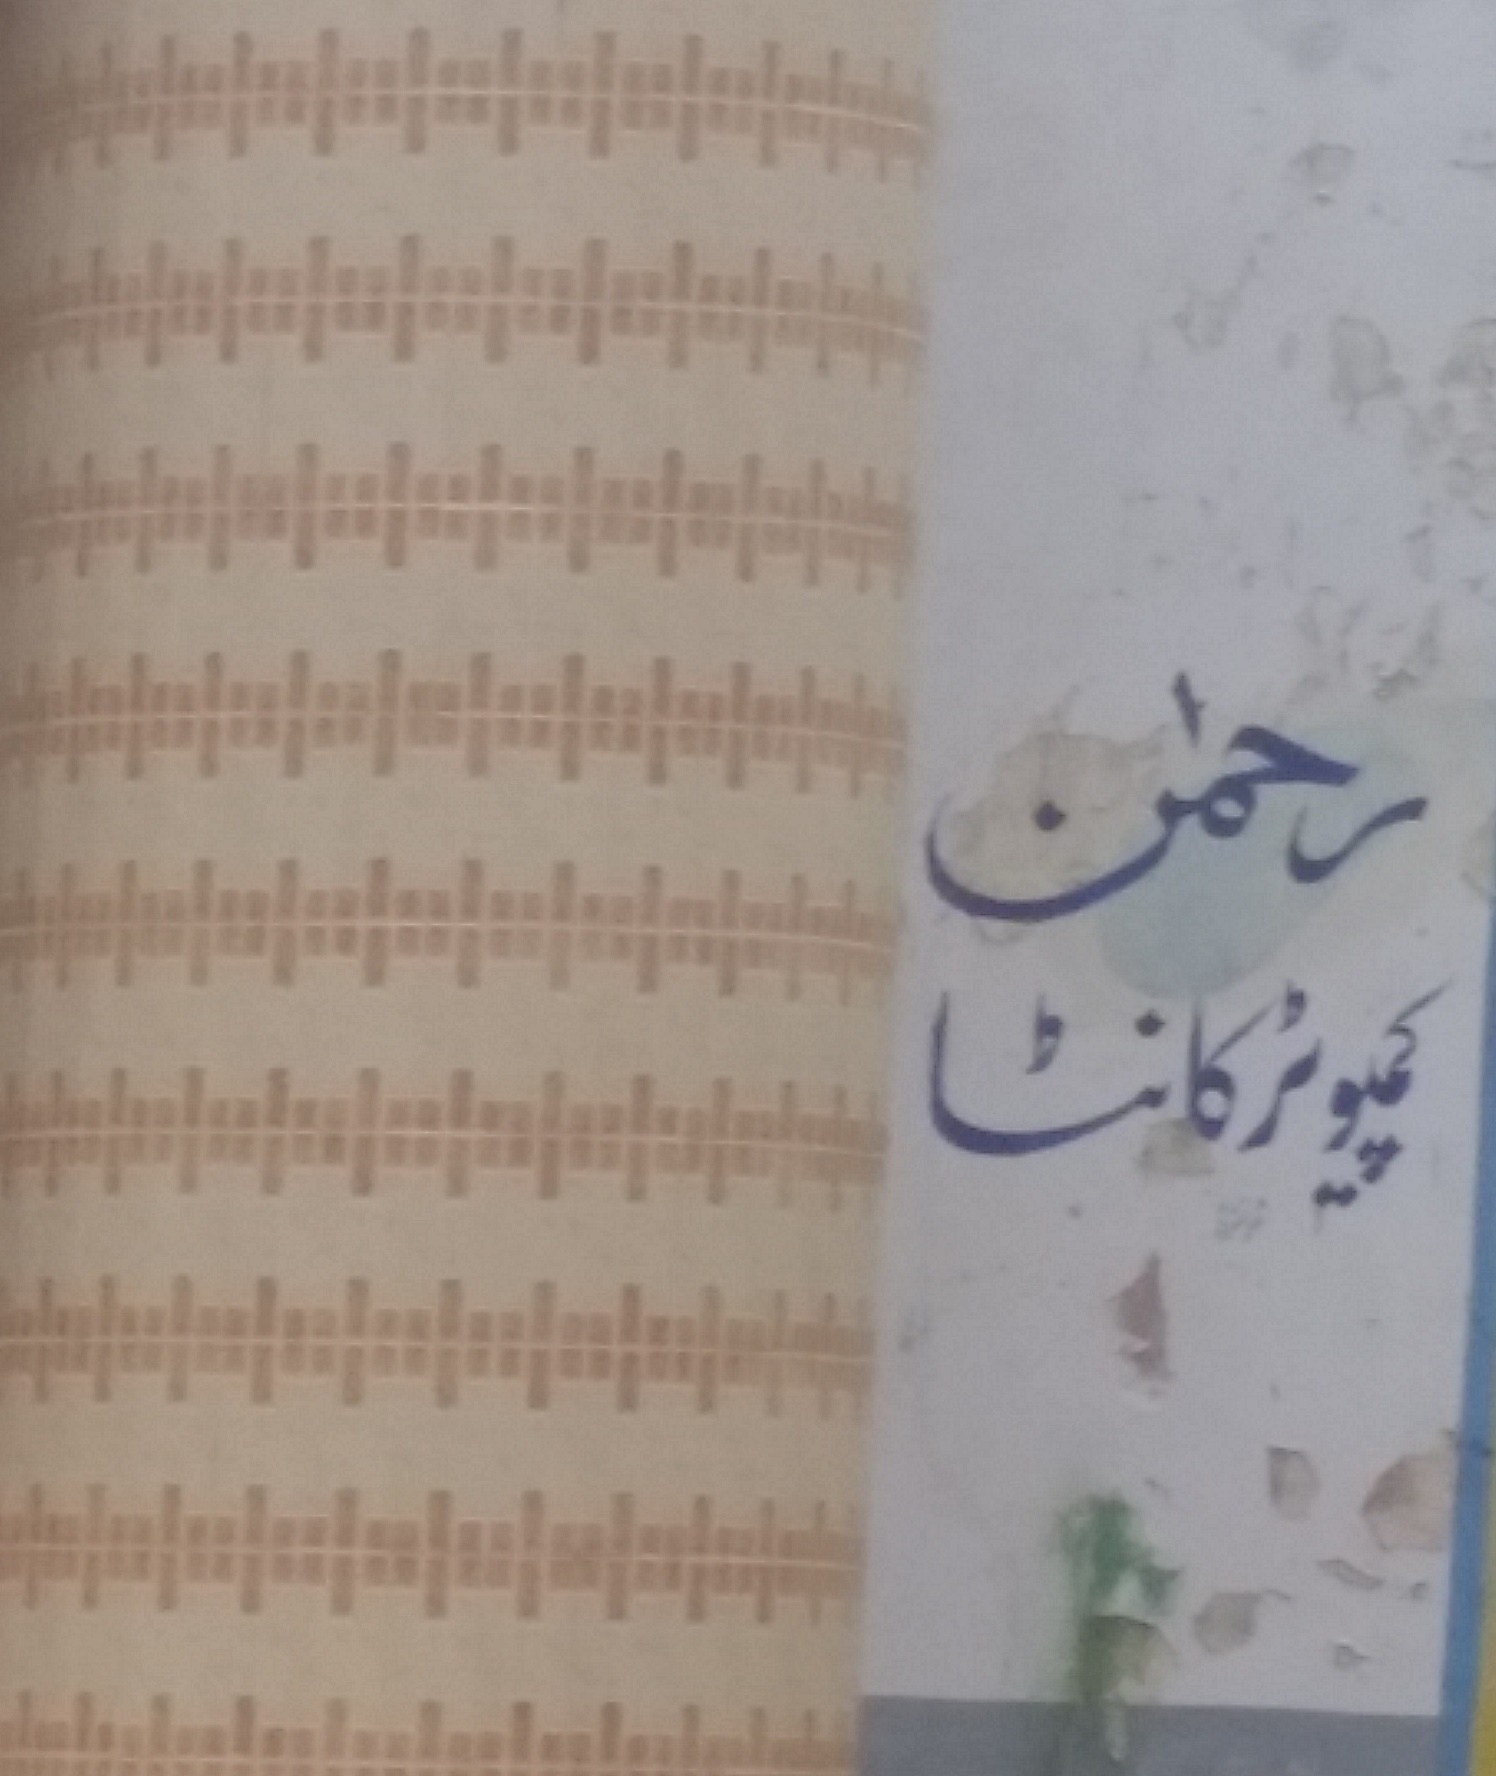 رحمٰن
کمپیوٹر کانٹا